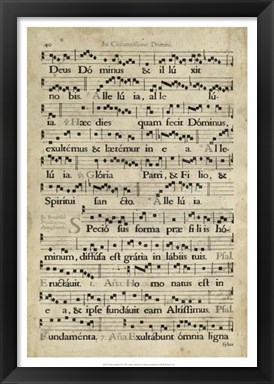 40 In Circumcisione Domini.
Deus Dó minus & il lú xit
no bis. Al le lú ia, al le lú-
ia. ℣. Hæc dies quam fecit Dóminus,
exultémus & lætémur in e a. al le lú-
ia. ℣. Glória Patri, & Fí lio, &
Spiritui san cto. Al le lú ia.
Speció sus forma præ fí li is hó-
minum, diffúsa est grátia in lábiis tuis. Psal.
Eructávit. Ho mo natus est in
e a, & ipse fundávit eam Altíssimus. Psal.
Fundaménta. Exultábunt ómnia ligna